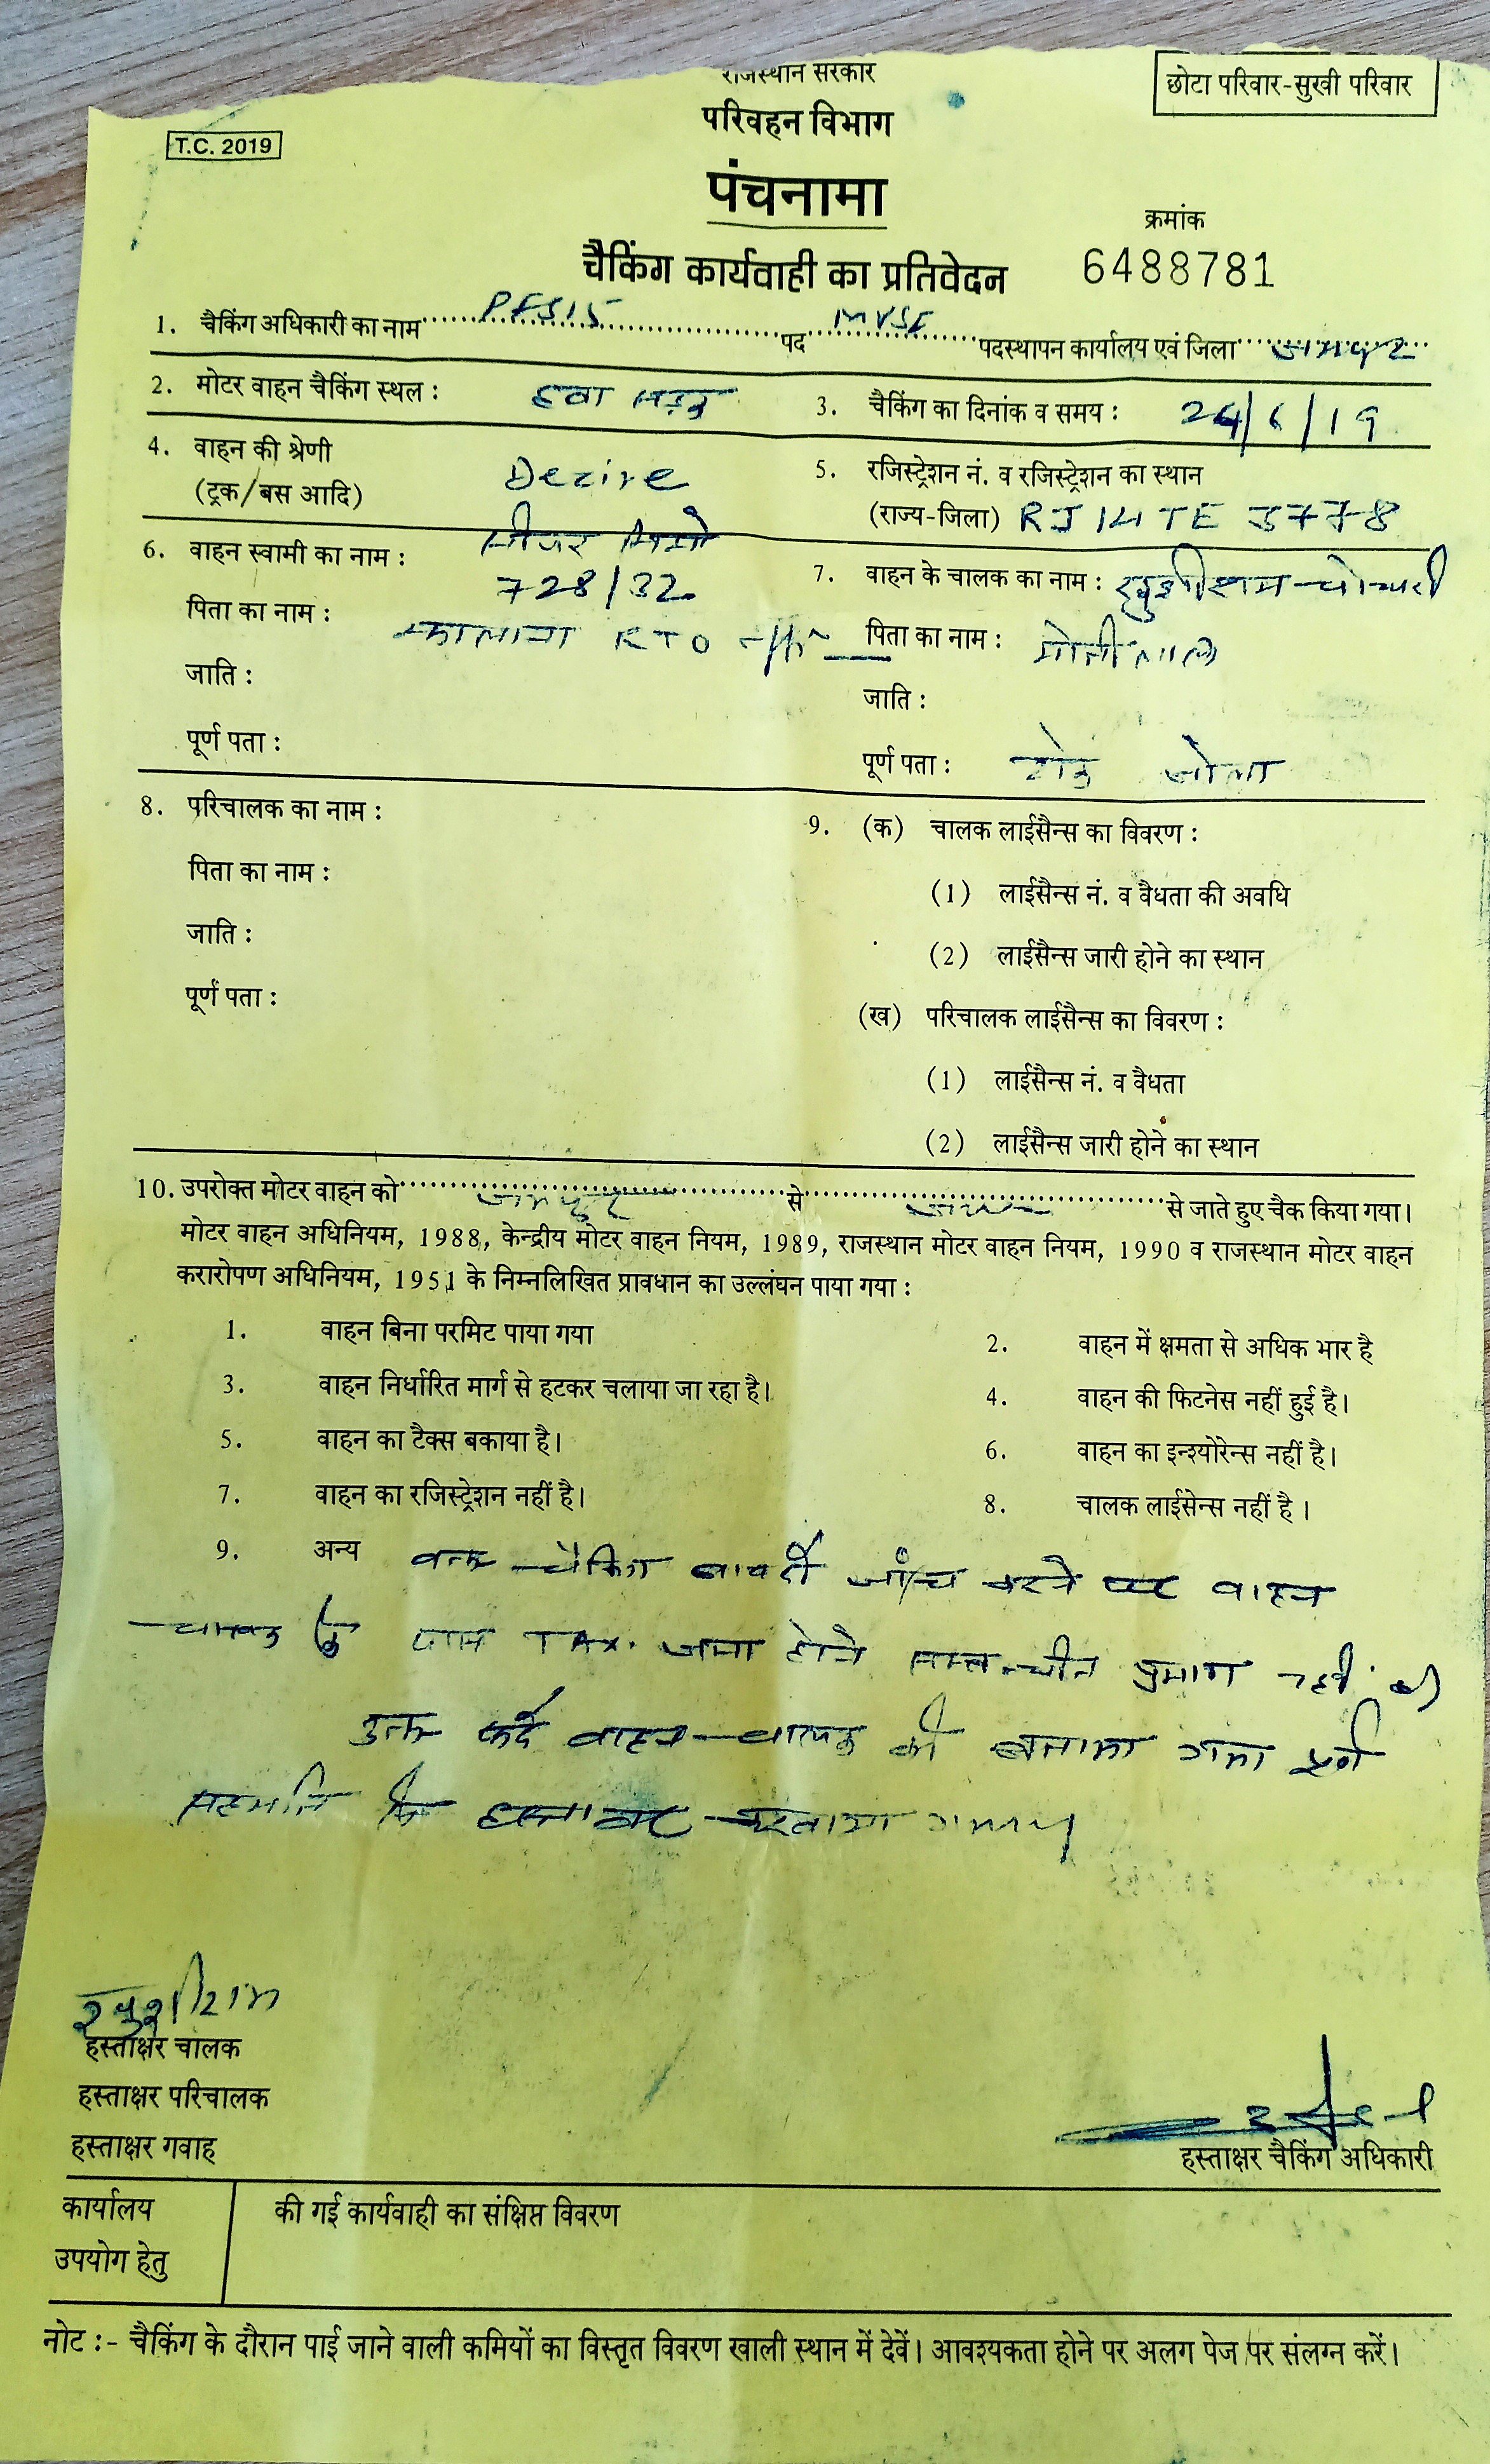 राजस्थान सरकार
छोटा परिवार-सुखी परिवार
परिवहन विभाग
T.C. 2019
पंचनामा
क्रमांक
चैकिंग कार्यवाही का प्रतिवेदन 6488781
1. चैकिंग अधिकारी का नाम PFS15 पद MVSI पदस्थापन कार्यालय एवं जिला जयपुर
2. मोटर वाहन चैकिंग स्थल : हवा सड़क 3. चैकिंग का दिनांक व समय : 24/6/19
4. वाहन की श्रेणी Dezire 5. रजिस्ट्रेशन नं. व रजिस्ट्रेशन का स्थान
(ट्रक/बस आदि) (राज्य-जिला) RJ 14 TE 3778
6. वाहन स्वामी का नाम : 728/32 7. वाहन के चालक का नाम : खुशीराम चौधरी
पिता का नाम : RTO पिता का नाम :
जाति : जाति :
पूर्ण पता : पूर्ण पता :
8. परिचालक का नाम : 9. (क) चालक लाईसैन्स का विवरण :
पिता का नाम : (1) लाईसैन्स नं. व वैधता की अवधि
जाति : (2) लाईसैन्स जारी होने का स्थान
पूर्ण पता : (ख) परिचालक लाईसैन्स का विवरण :
(1) लाईसैन्स नं. व वैधता
(2) लाईसैन्स जारी होने का स्थान
10. उपरोक्त मोटर वाहन को जयपुर से से जाते हुए चैक किया गया।
मोटर वाहन अधिनियम, 1988, केन्द्रीय मोटर वाहन नियम, 1989, राजस्थान मोटर वाहन नियम, 1990 व राजस्थान मोटर वाहन
करारोपण अधिनियम, 1951 के निम्नलिखित प्रावधान का उल्लंघन पाया गया :
1. वाहन बिना परमिट पाया गया 2. वाहन में क्षमता से अधिक भार है
3. वाहन निर्धारित मार्ग से हटकर चलाया जा रहा है। 4. वाहन की फिटनेस नहीं हुई है।
5. वाहन का टैक्स बकाया है। 6. वाहन का इन्श्योरेन्स नहीं है।
7. वाहन का रजिस्ट्रेशन नहीं है। 8. चालक लाईसेन्स नहीं है।
9. अन्य वक्त चैकिंग जांच करने पर वाहन
चालक के पास TAX जमा होने प्रमाण नहीं
उक्त वाहन चालक को बताया गया
सहमति के हस्ताक्षर करवाया गया
खुशीराम
हस्ताक्षर चालक
हस्ताक्षर परिचालक
हस्ताक्षर गवाह हस्ताक्षर चैकिंग अधिकारी
कार्यालय की गई कार्यवाही का संक्षिप्त विवरण
उपयोग हेतु
नोट :- चैकिंग के दौरान पाई जाने वाली कमियों का विस्तृत विवरण खाली स्थान में देवें। आवश्यकता होने पर अलग पेज पर संलग्न करें।